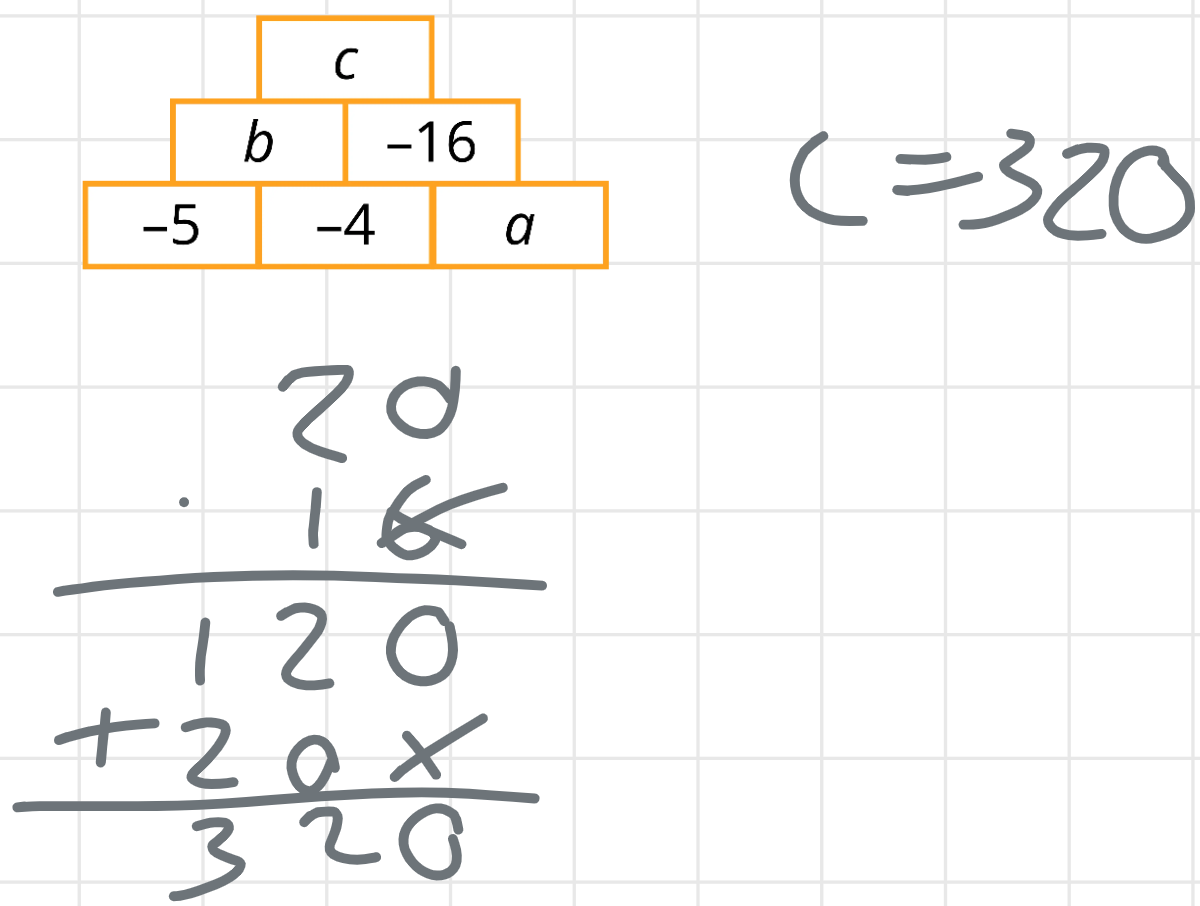 c
b –16
–5 –4 a
C=320
20
· 16
120
+20x
320